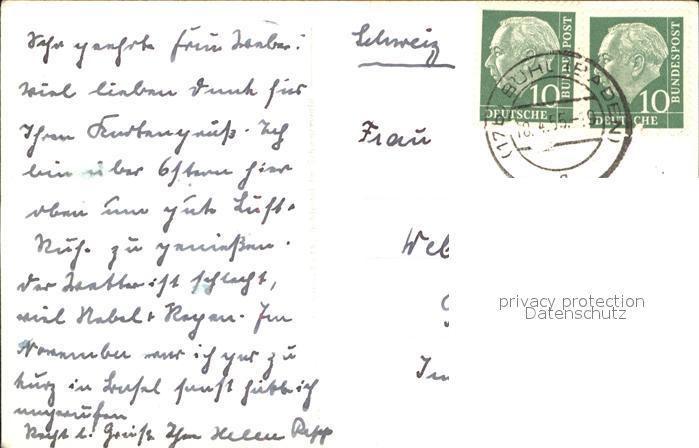 Sehr geehrte Frau Weber!
Viel lieben Dank für
Ihren Kartengruß. Ich
bin über Ostern hier
oben um gute Luft +
Ruh. zu genießen.
Das Wetter ist schlecht,
viel Nebel + Regen. Im
November war ich gar zu
kurz in Basel sonst hätte ich
angerufen
Recht l. Grüße Ihre Helen Rapp
Schweiz
Frau
Web
In
10
DEUTSCHE
BUNDESPOST
10
DEUTSCHE
BUNDESPOST
(17b) BÜHL (BADEN)
privacy protection
Datenschutz